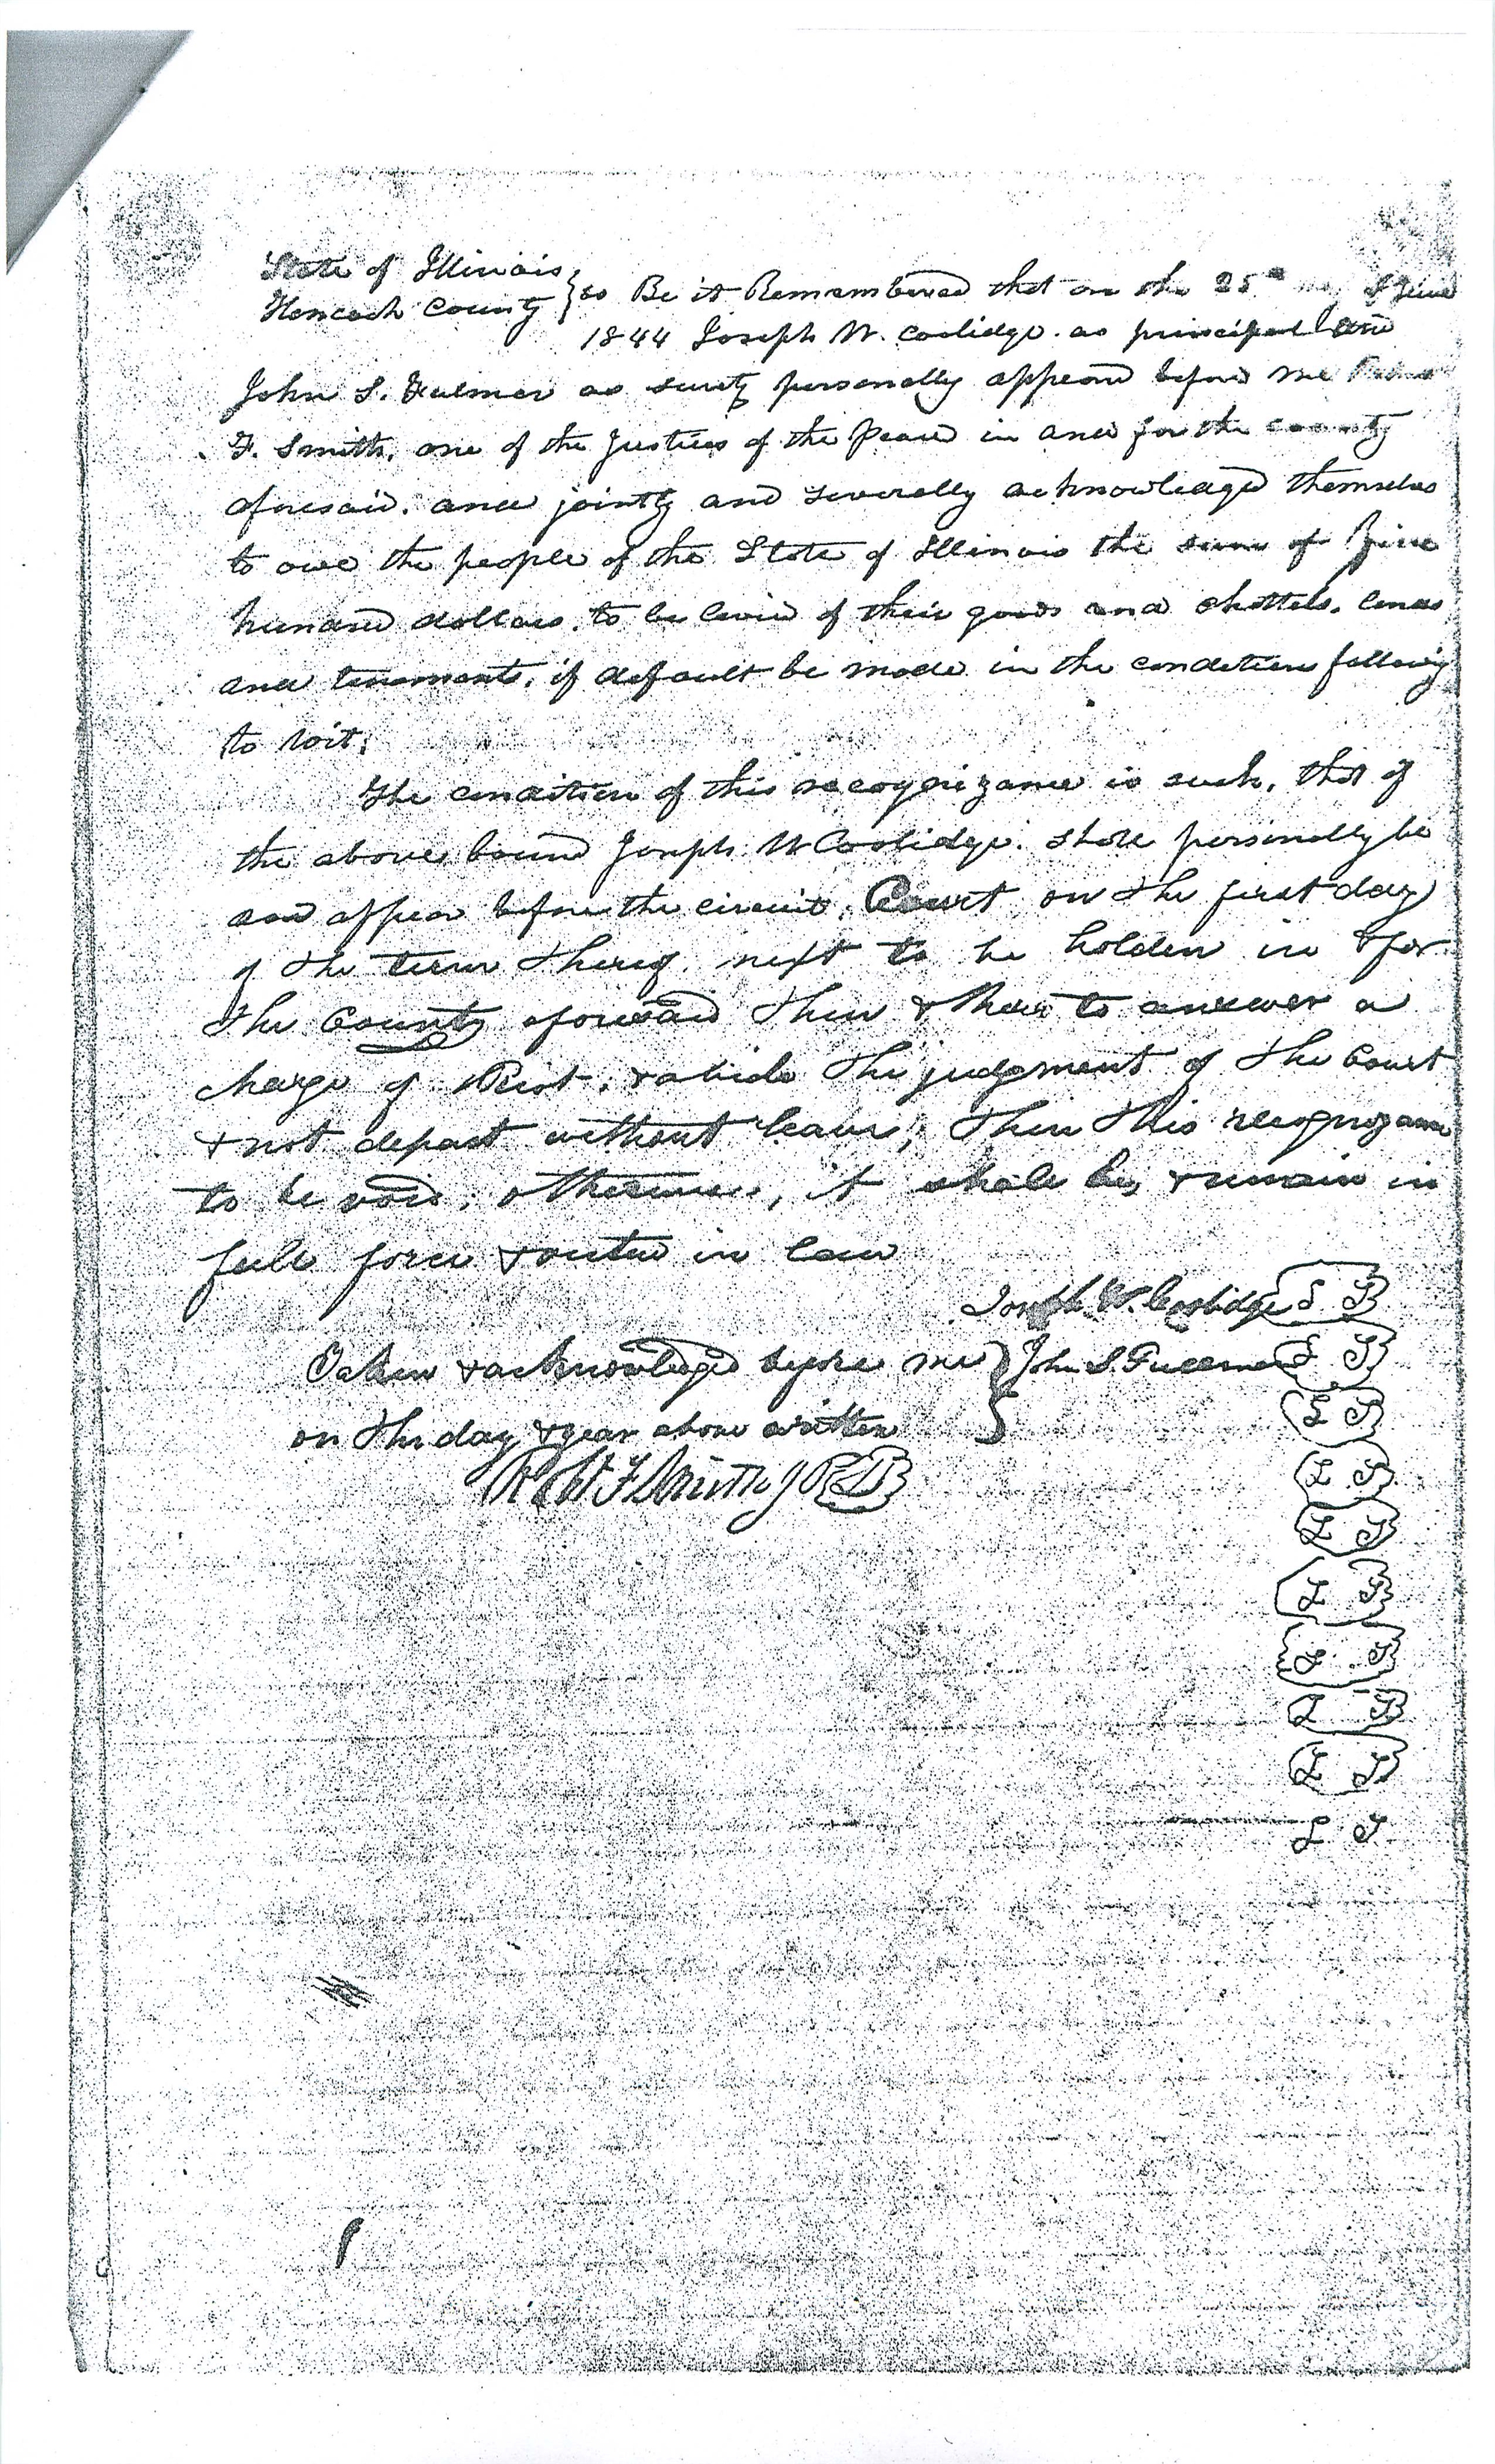 State of Illinois
Hancock County } ss Be it Remembered that on the 25th day of June
1844 Joseph W. Coolidge. as principal and
John S. Fulmer as surety personally appeard before me
F. Smith, one of the Justices of the Peace in and for the county
aforesaid. and jointly and severally acknowledged themselves
to owe the people of the State of Illinois the sum of five
hundred dollars. to be levied of their goods and chattels, lands
and tenements, if default be made in the condition following
to wit;
The condition of this recognizance is such, that if
the above bound Joseph W Coolidge. shall personally be
and appear before the circuit. Court on the first day
of the term thereof next to be holden in & for
the County aforesaid then & there to answer a
charge of Riot. & abide the judgment of the Court
& not depart without leave; then this recognizance
to be void; otherwise, it shall be, & remain in
full force & virtue in law
Joseph W. Coolidge L S
Taken & acknowledged before me } John S. Fullmer L S
on the day & year above written L S
Robt F Smith J P LS L S
L S
L S
L S
L S
L S
L S